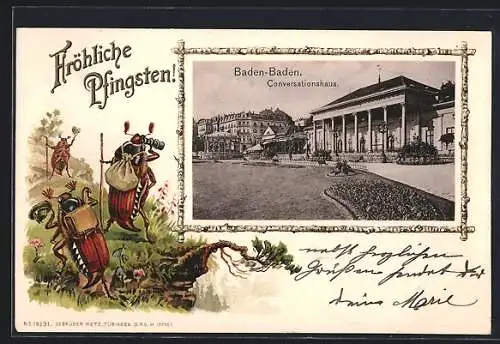 Fröhliche
Pfingsten!
Baden-Baden.
Conversationshaus.
nebst herzlichen
Grüßen sendet dir
deine Marie
GEBRÜDER METZ, TÜBINGEN